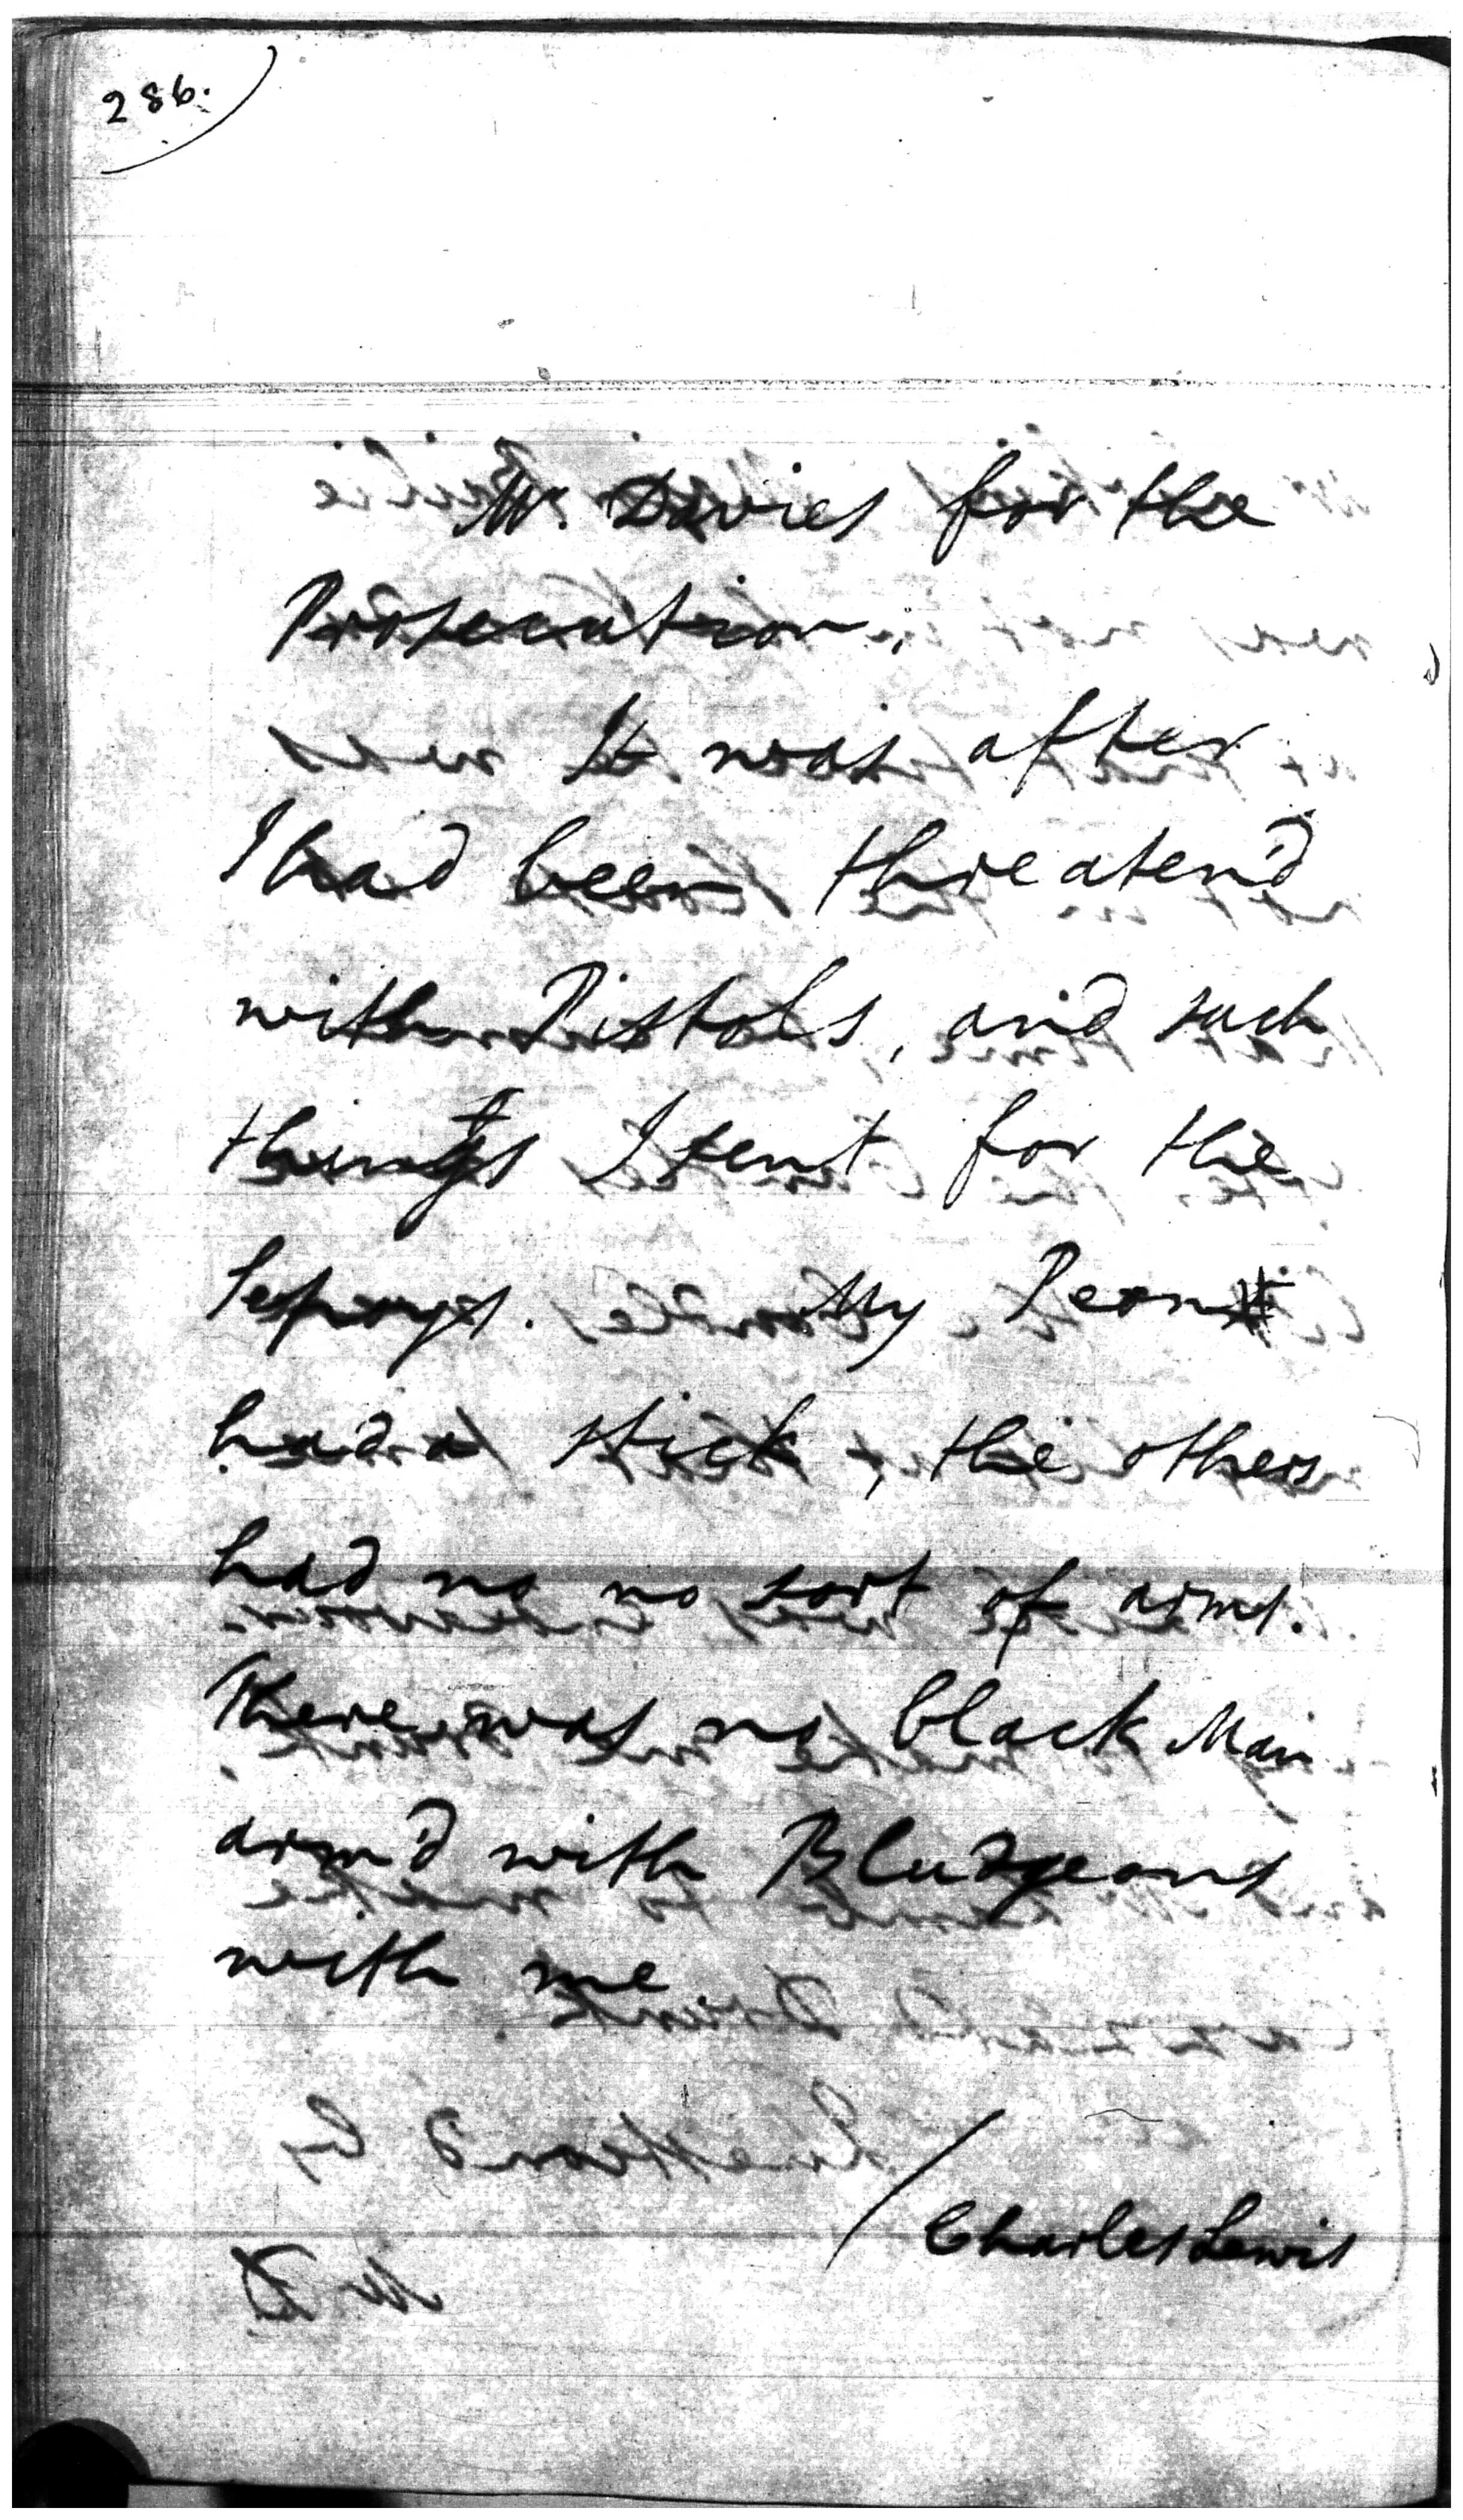 286.
Mr. Davies for the
Prosecution.
It was after
I had been threaten'd
with Pistols, and such
things I sent for the
Sepoys. My Peon
had a stick, the others
had no no sort of arms.
There was no black Man
arm'd with Bludgeons
with me
Charles Lewis